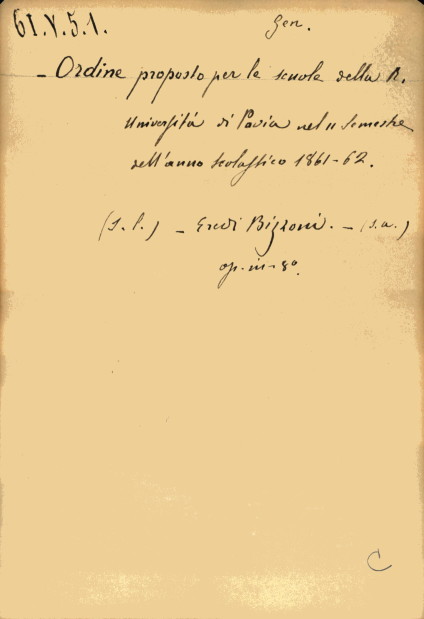 61.V.5.1.
Gen.
- Ordine proposto per le scuole della R.
Università di Pavia nel II semestre
dell'anno scolastico 1861-62.
(s.l.) - Eredi Bizzoni. - (s.a.)
op. in-8º.
C